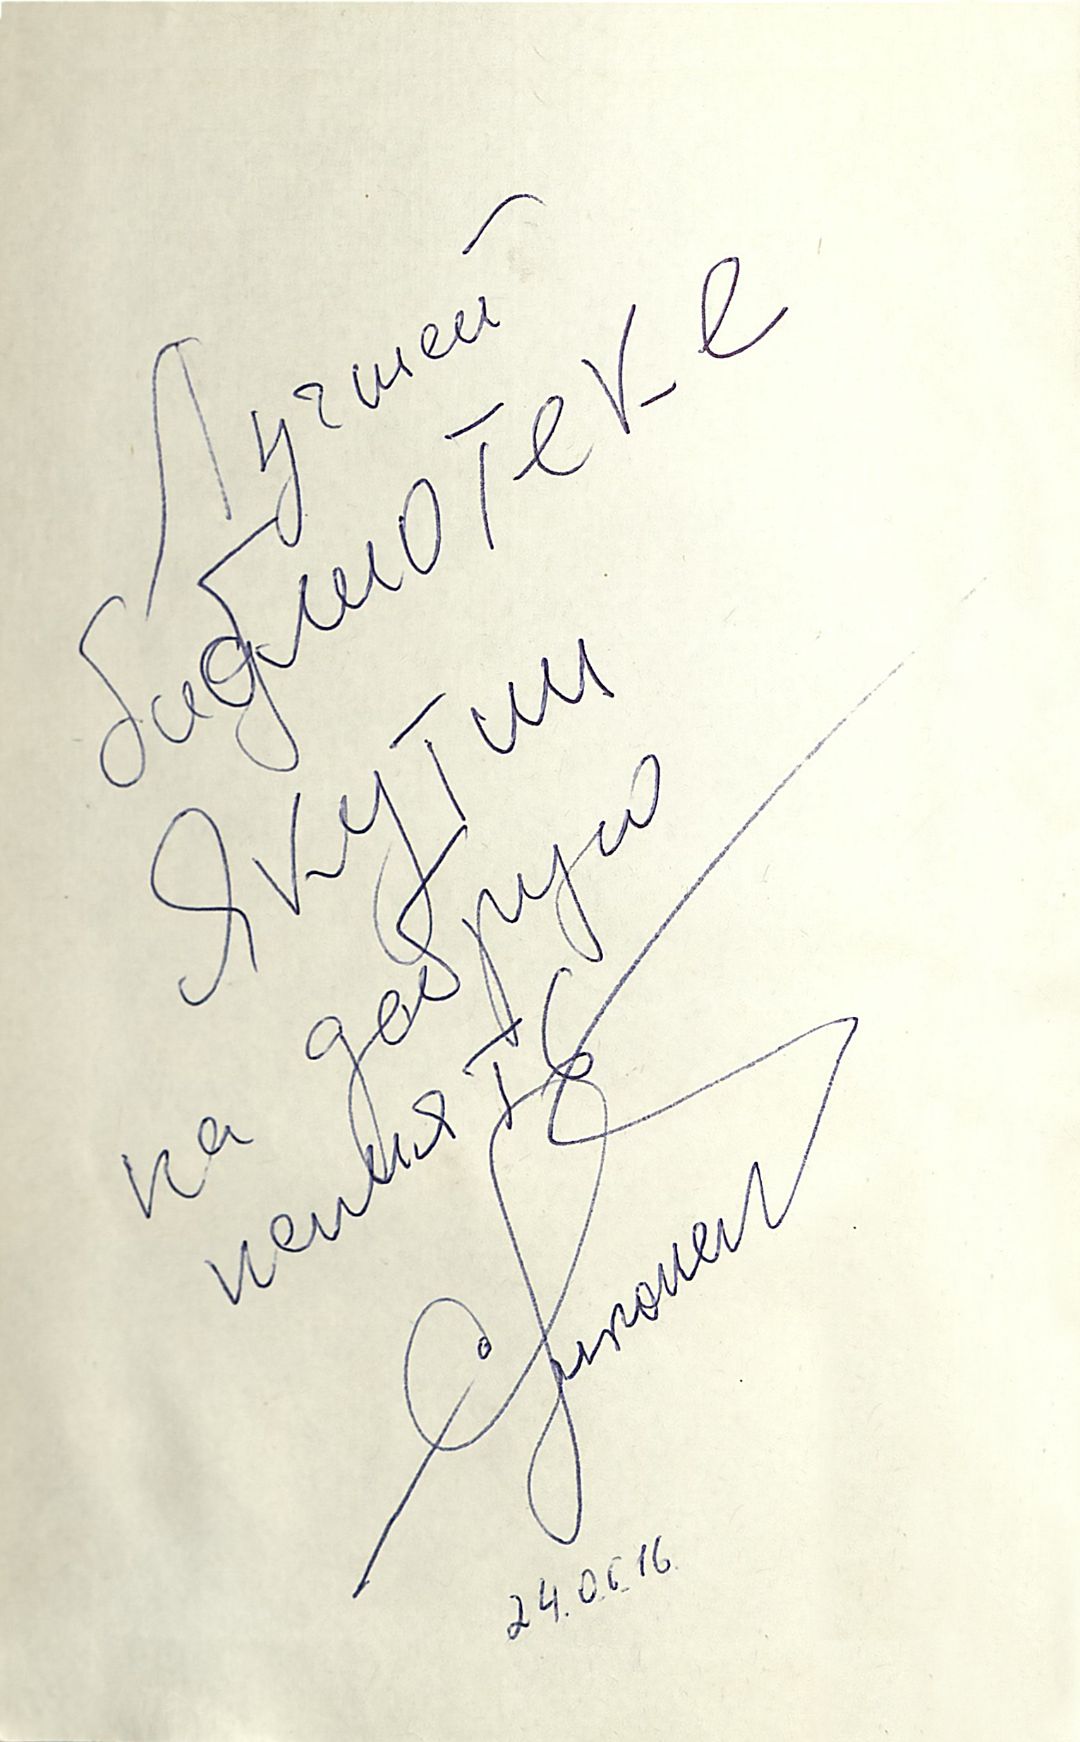 Лучшей
библиотеке
Якутии
на добрую
память
24.06.16.